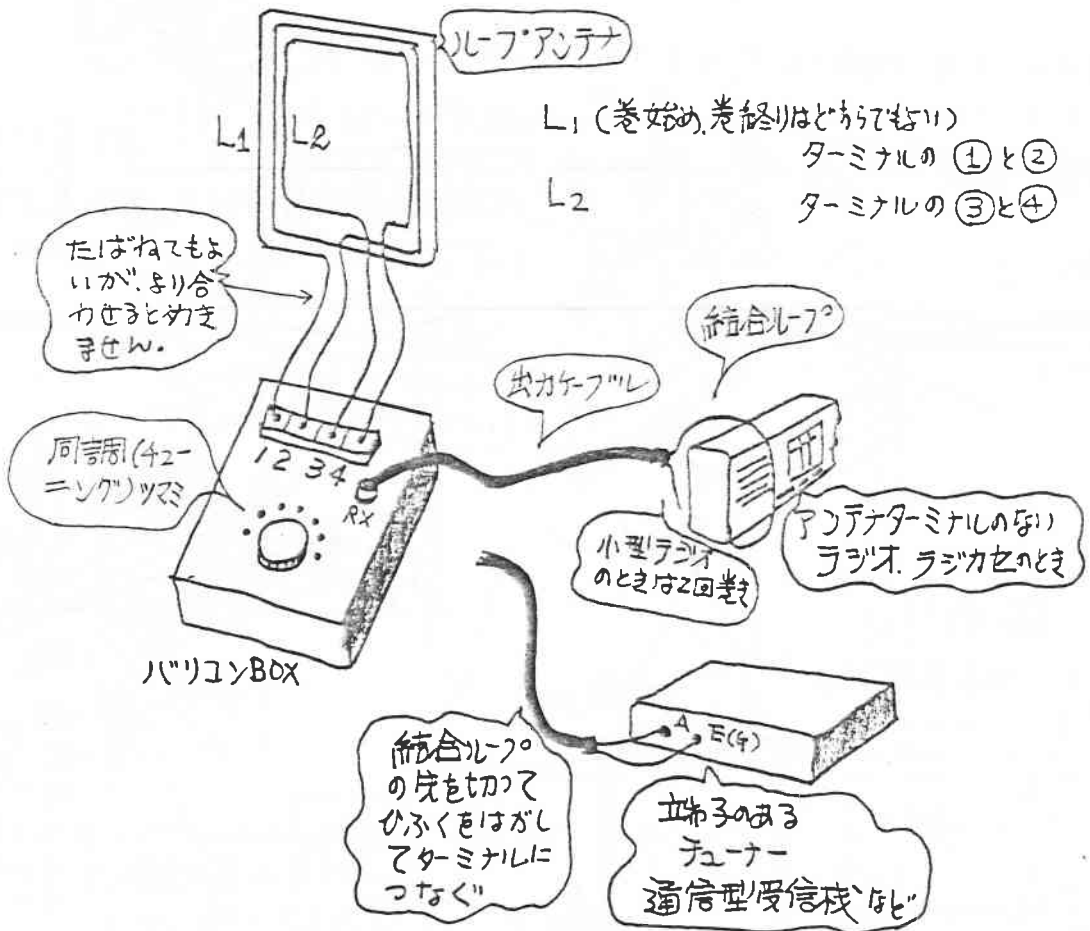 ループアンテナ
L1
L2
L1 (巻始め、巻終りはどちらでもよい)
ターミナルの ① と ②
L2
ターミナルの ③ と ④
たばねてもよ
いが、より合
わせるとめきき
ません。
結合ループ
出力ケーブル
同調(チュー
ニング)ツマミ
1 2 3 4
RX
小型ラジオ
のときは2回巻き
アンテナターミナルのない
ラジオ、ラジカセのとき
バリコンBOX
結合ループ
の先を切って
ひふくをはがし
てターミナルに
つなぐ
A E(G)
端子のある
チューナー
通信型受信機など